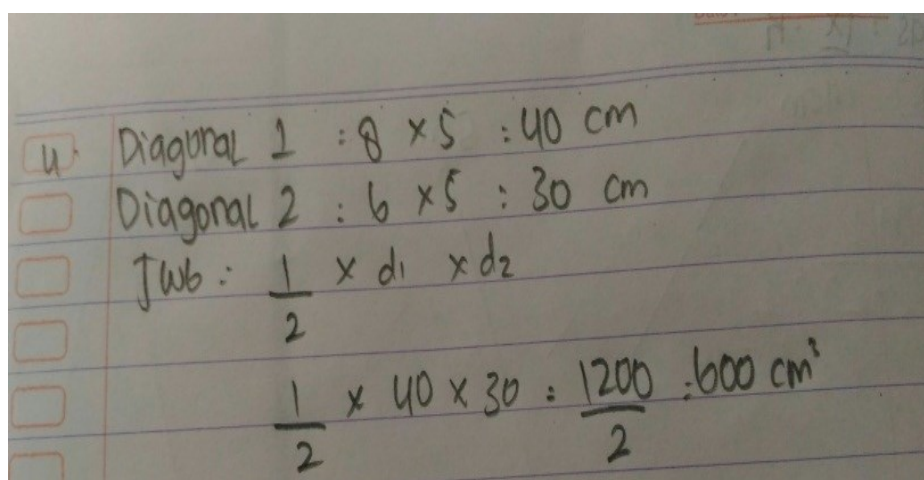 4. Diagonal 1 : 8 × 5 : 40 cm
Diagonal 2 : 6 × 5 : 30 cm
Jwb : 1/2 × d₁ × d₂
1/2 × 40 × 30 : 1200/2 : 600 cm³